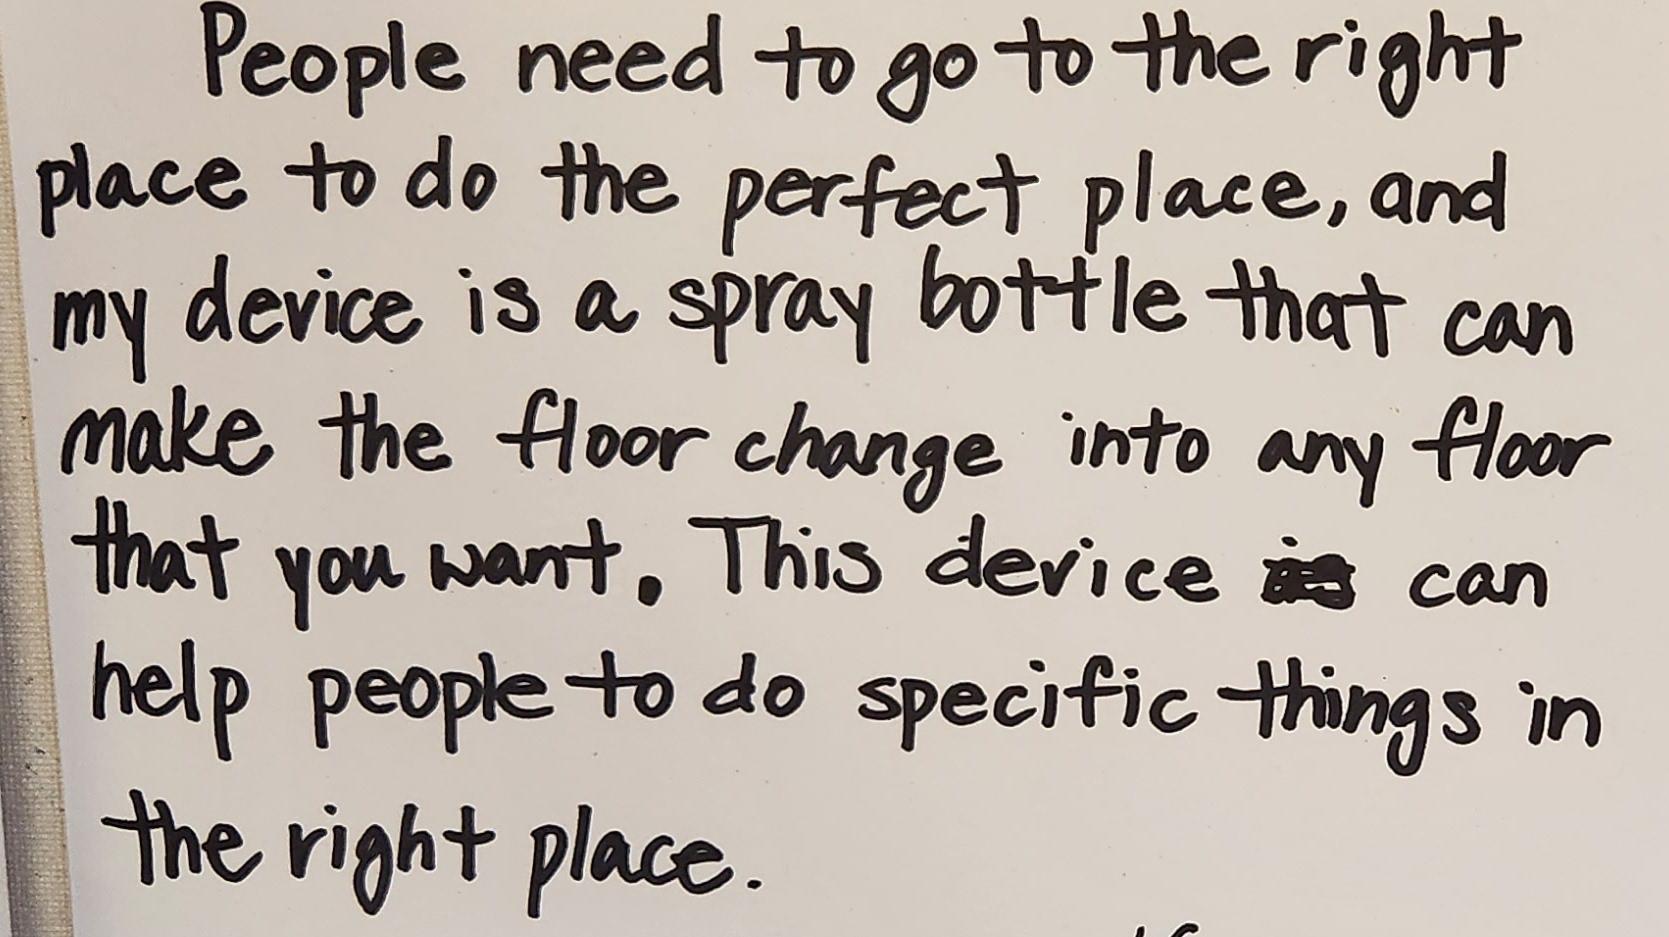 People need to go to the right
place to do the perfect place, and
my device is a spray bottle that can
make the floor change into any floor
that you want. This device can
help people to do specific things in
the right place.